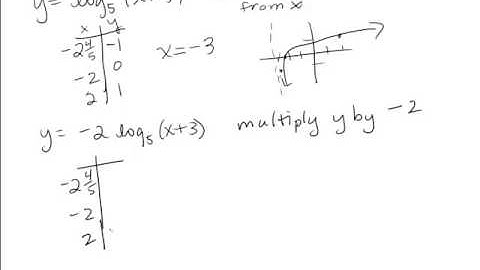 y = log₅(x+3)
from x
x y
-2 4/5 -1
-2 0
2 1
x = -3
y = -2 log₅(x+3) multiply y by -2
-2 4/5
-2
2